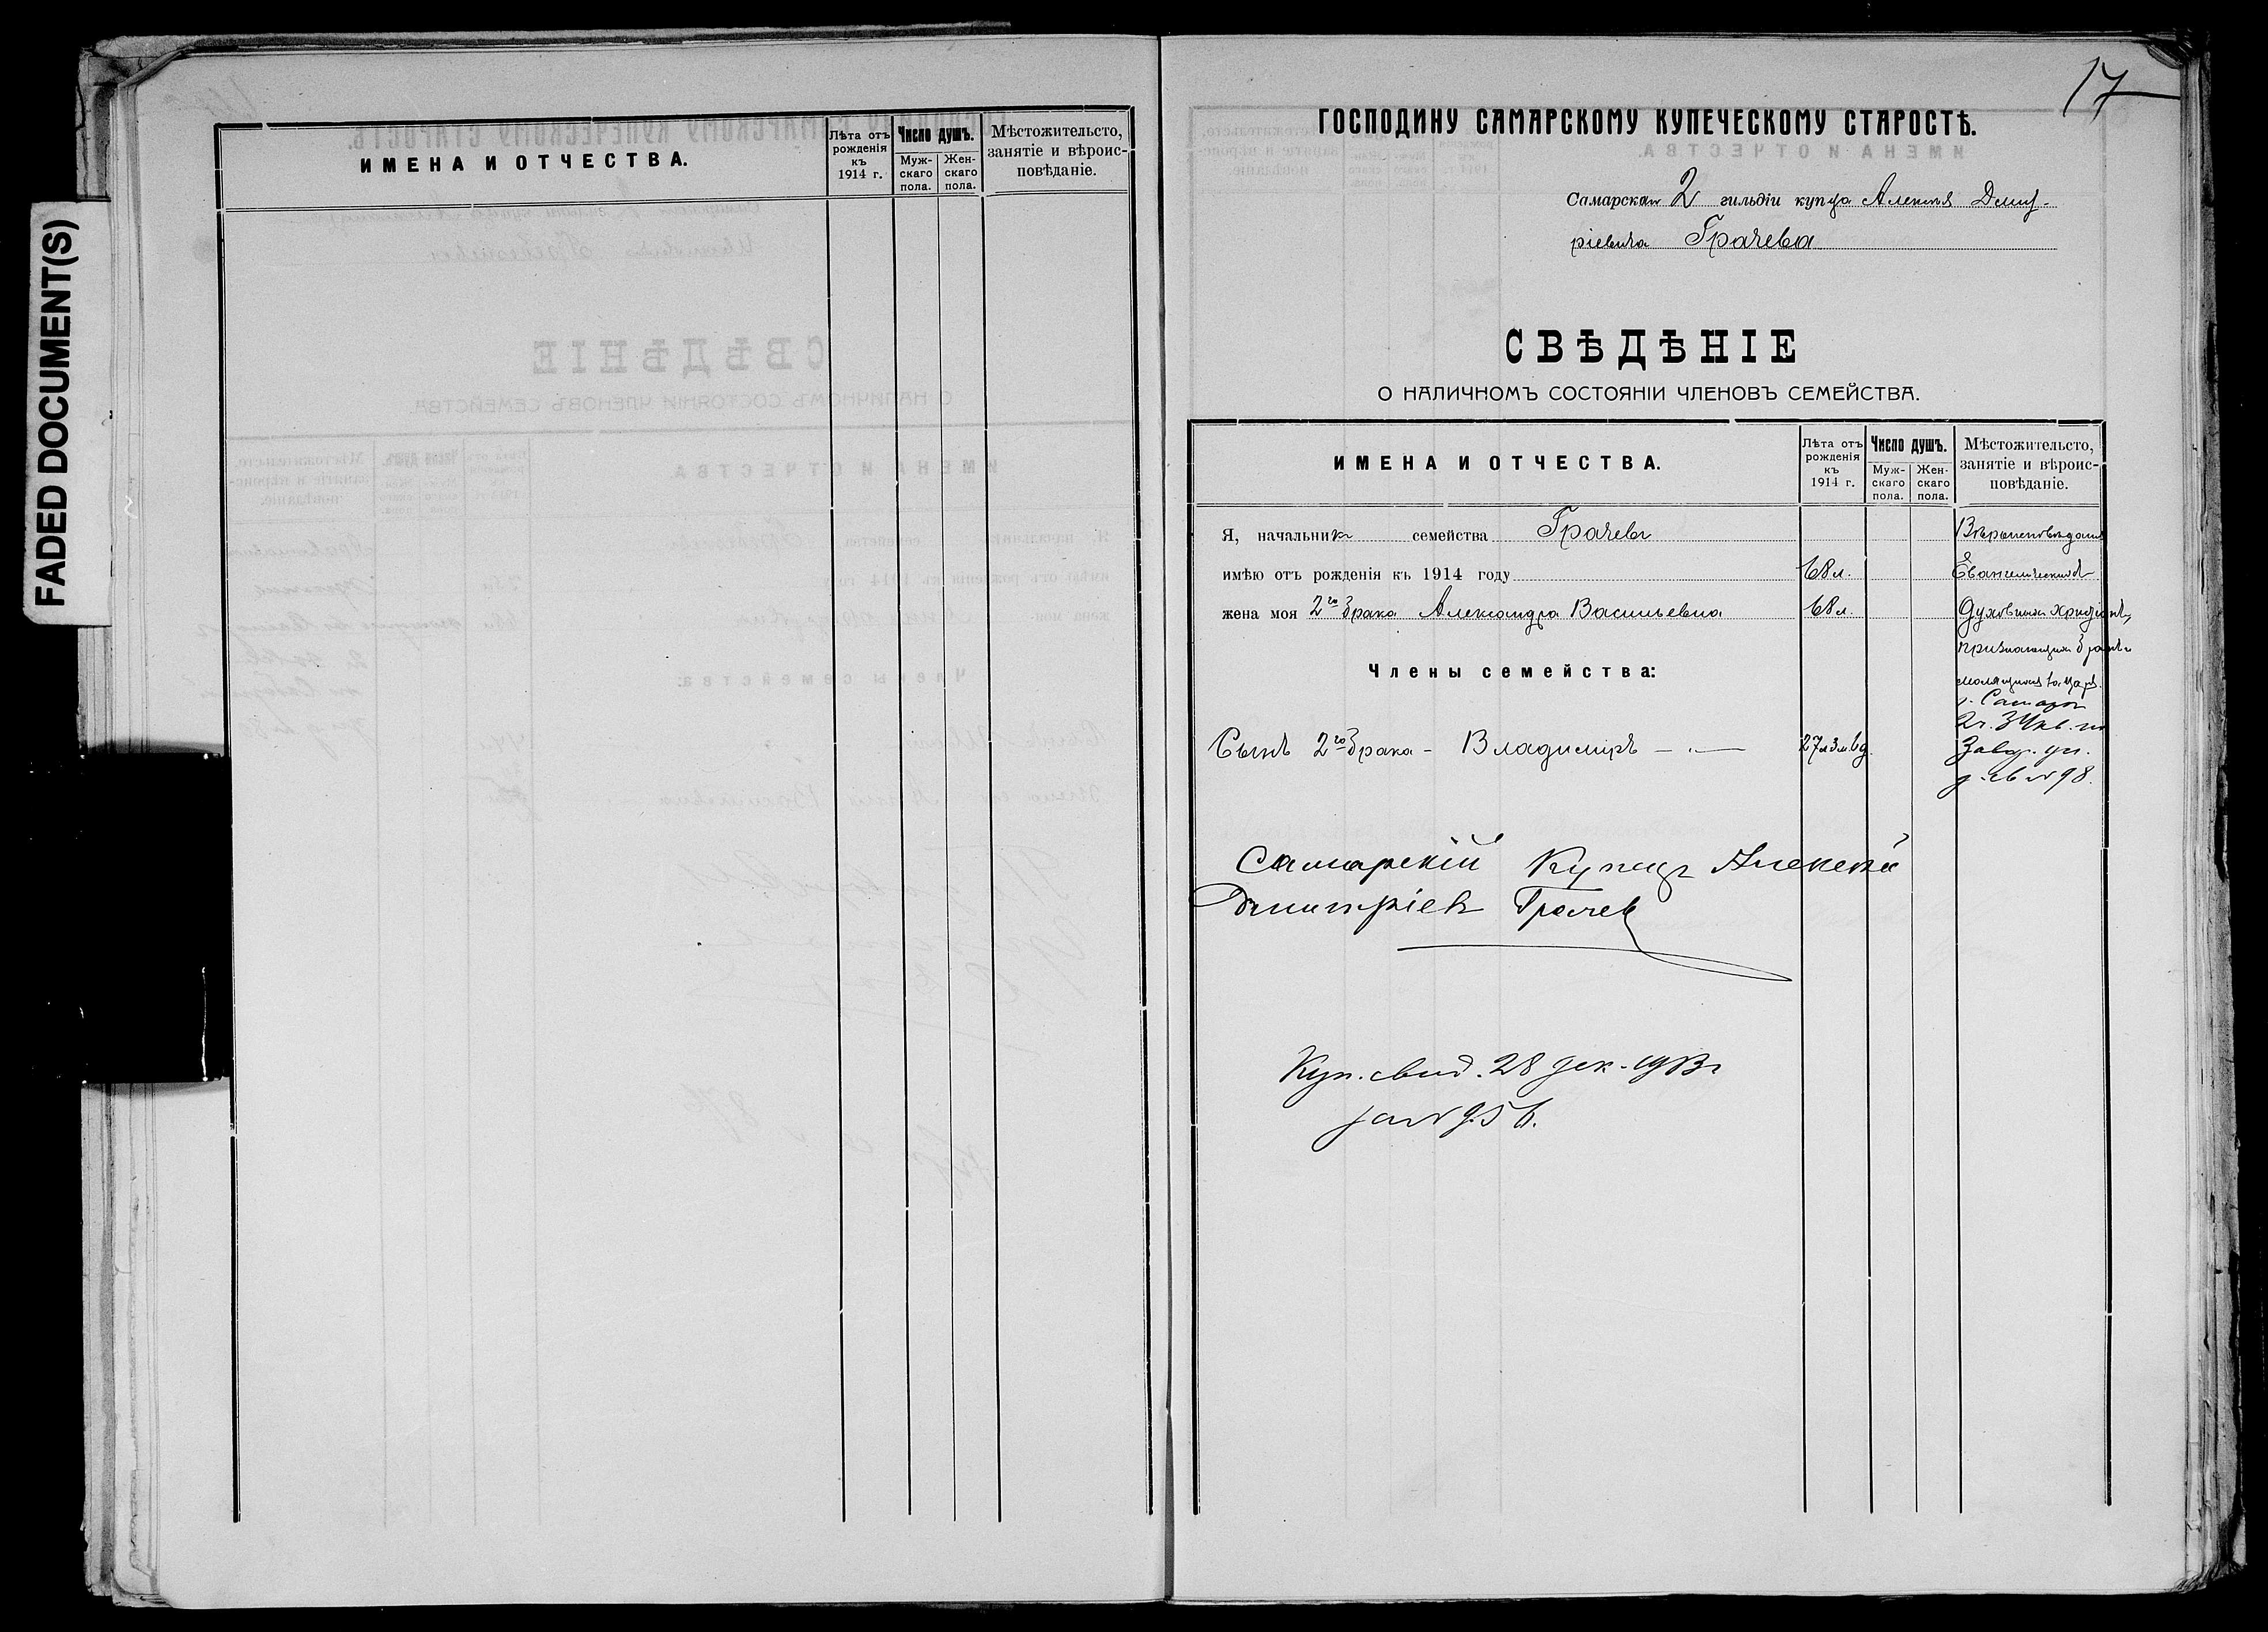 FADED DOCUMENT(S)
ИМЕНА И ОТЧЕСТВА.
Лѣта отъ рожденія къ 1914 г.
Число душъ.
Мужскаго пола.
Женскаго пола.
Мѣстожительсто, занятіе и вѣроис-повѣданіе.
17
ГОСПОДИНУ САМАРСКОМУ КУПЕЧЕСКОМУ СТАРОСТѢ.
Самарскаго 2 гильдіи купца Алексѣя Дмит-
ріевича Грачева
СВѢДѢНІЕ
О НАЛИЧНОМЪ СОСТОЯНІИ ЧЛЕНОВЪ СЕМЕЙСТВА.
ИМЕНА И ОТЧЕСТВА.
Лѣта отъ рожденія къ 1914 г.
Число душъ.
Муж-скаго пола.
Жен-скаго пола.
Мѣстожительсто, занятіе и вѣроис-повѣданіе.
Я, начальникъ семейства Грачевъ
Вѣроисповѣданія
имѣю отъ рожденія къ 1914 году 68 л.
Евангелическихъ
жена моя 2го брака Александра Васильевна 68 л.
Духовныхъ христіанъ,
признающихъ бракъ и
Члены семейства:
молящихся за Царя.
г. Самара
2 ч. 34 кв. по
Сынъ 2го брака - Владиміръ 27 л 3 м. 6 д.
Завод. ул.
д. св № 98.
Самарскій Купецъ Алексѣй
Дмитріев Грачев
Куп. свид. 28 дек. 1913 г
за № 956.